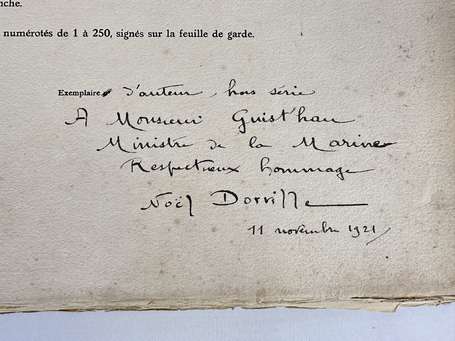 nche.
numérotés de 1 à 250, signés sur la feuille de garde.
Exemplaire d'auteur, hors série
A Monsieur Guist'hau
Ministre de la Marine
Respectueux hommage
Noël Dorville
11 novembre 1921